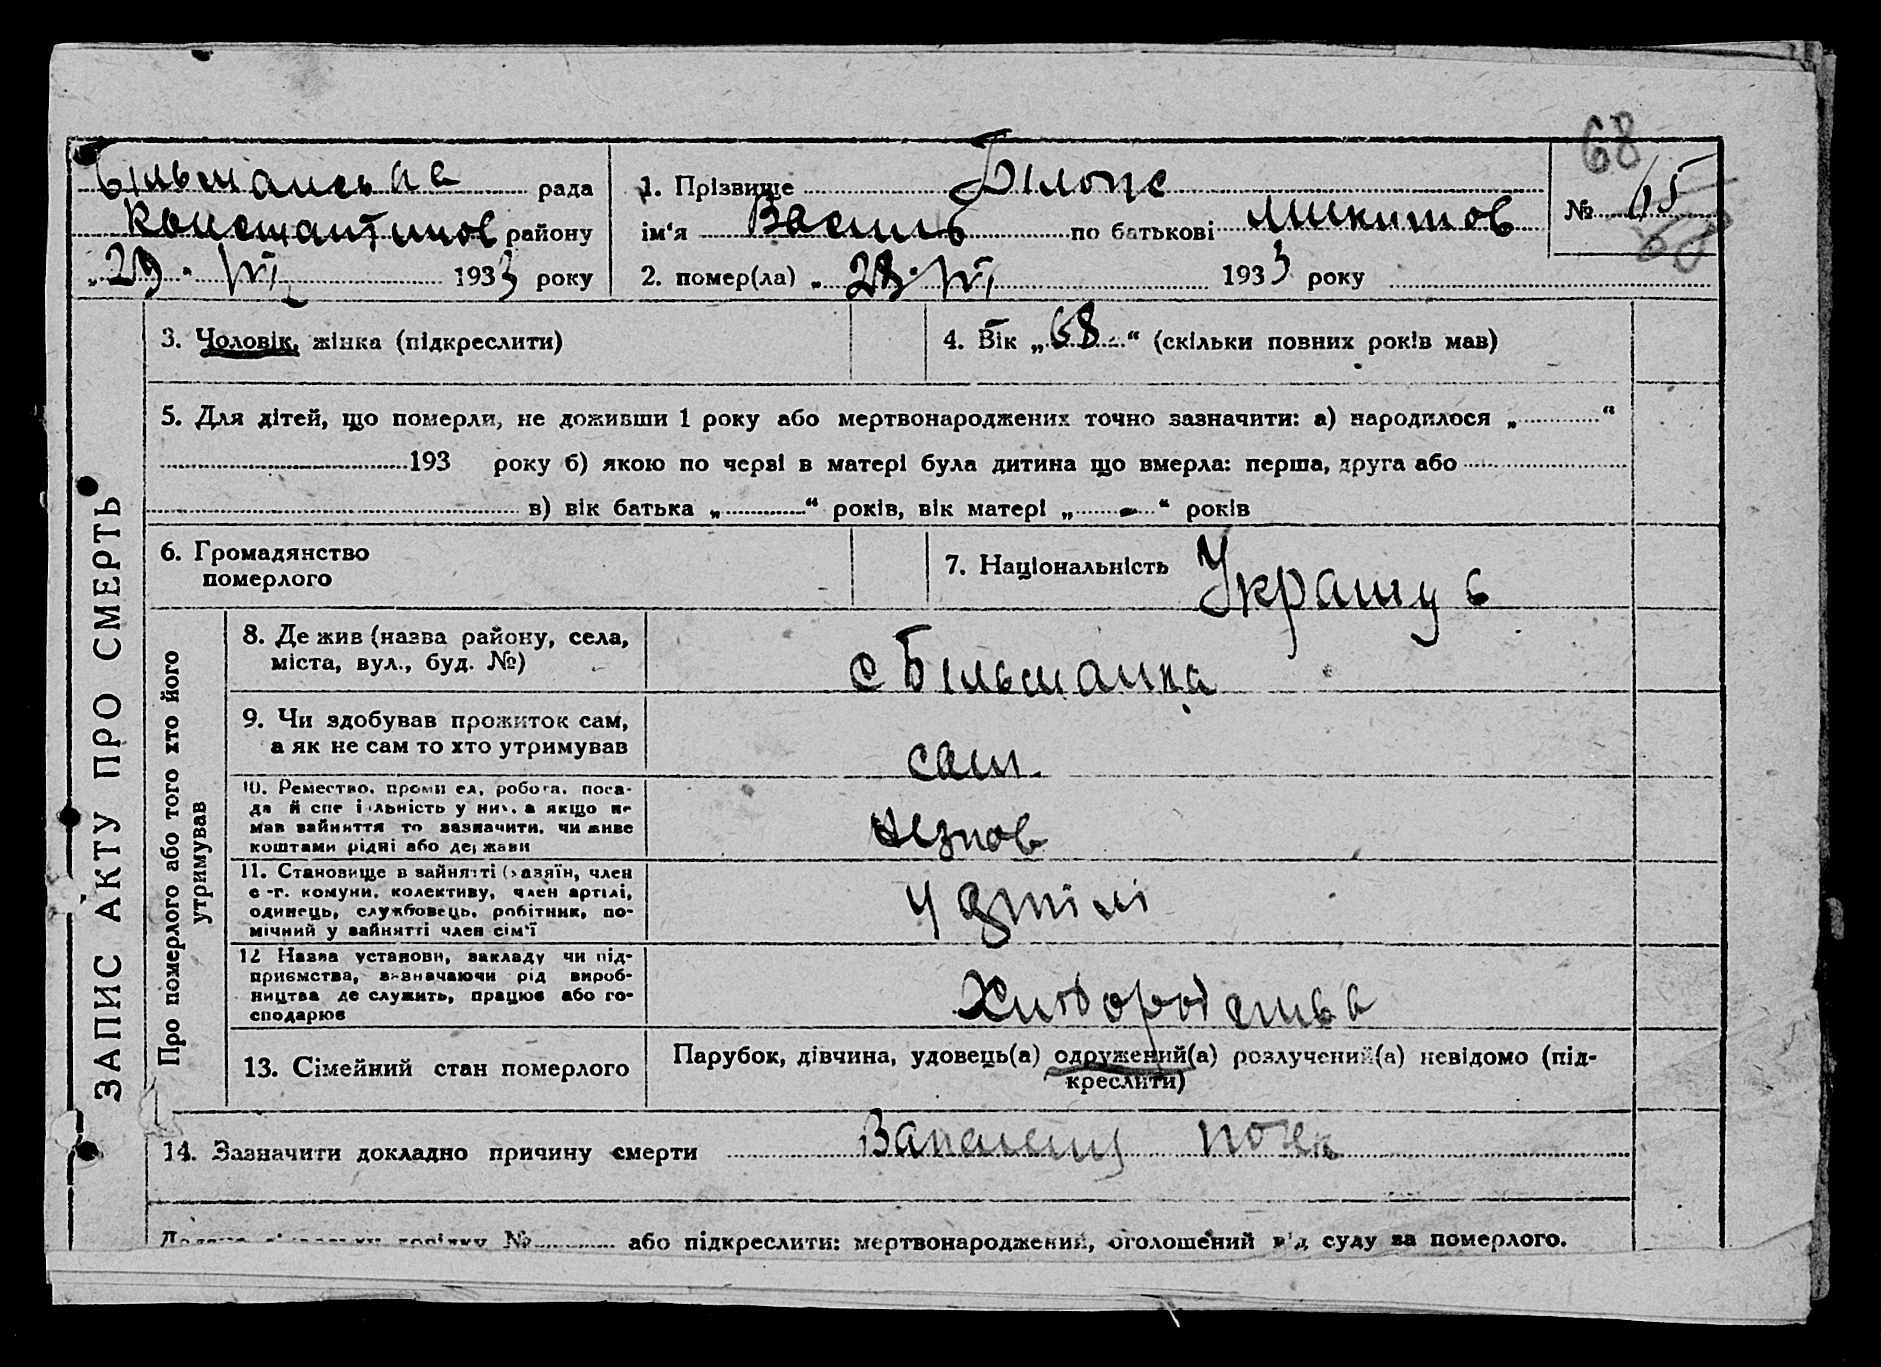 68
Більшанська рада
Константинов району
„29. VI 1933 року
1. Прізвище Білопс
ім‘я Василь по батькові Микитов
2. помер(ла) „28. VI 1933 року
№ 65
ЗАПИС АКТУ ПРО СМЕРТЬ
3. Чоловік, жінка (підкреслити)
4. Вік „68“ (скільки повних років мав)
5. Для дітей, що померли, не доживши 1 року або мертвонароджених точно зазначити: а) народилося „ “
193 року б) якою по черві в матері була дитина що вмерла: перша, друга або
в) вік батька „ “ років, вік матері „ - “ років
6. Громадянство
померлого
7. Національність Украинцѣ
Про померлого або того хто його
утримував
8. Де жив (назва району, села,
міста, вул., буд. №)
с Більшанка
9. Чи здобував прожиток сам,
а як не сам то хто утримував
сам
10. Ремество, промисел, робота, поса-
да й спеціяльність у них, а якщо не
мав зайняття то зазначити, чи живе
коштами рідні або держави
11. Становище в зайнятті (хазяїн, член
с.-г. комуни, колективу, член артілі,
одинець, службовець, робітник, по-
мічний у зайнятті член сім‘ї
У артілі
12 Назва установи, закладу чи під-
приємства, зазначаючи рід вироб-
ництва де служить, працює або го-
сподарює
13. Сімейний стан померлого
Парубок, дівчина, удовець(а) одружений(а) розлучений(а) невідомо (під-
креслити)
14. Зазначити докладно причину смерти Запаления почек
№ або підкреслити: мертвонароджений, оголошений від суду за померлого.